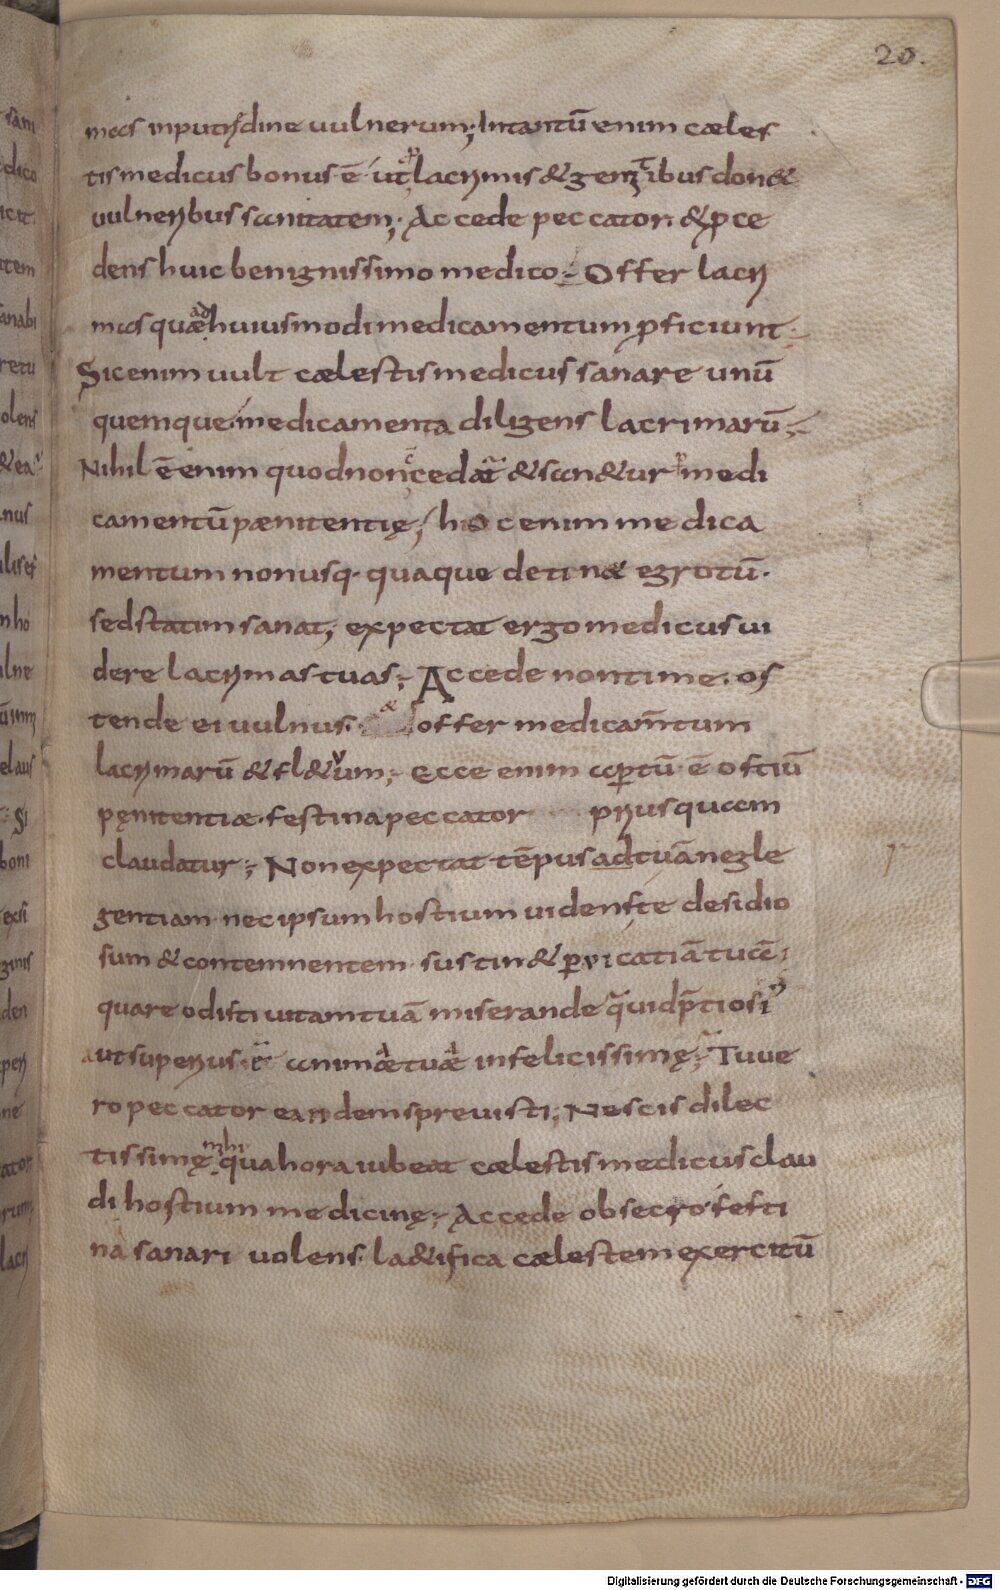 20.
mas inputridine uulnerum; Intantū enim cæles
tis medicus bonus ē ut p lacrimis & gemitibus donæ
uulneribus sanitatem; Accede peccator. & pce
dens huic benignissimo medico; Offer lacri
mas quæ ad huiusmodi medicamentum pficiunt.
Sic enim uult cælestis medicus sanare unū
quemque medicamenta diligens lacrimarū;
Nihil ē enim quod non cedat & san&ur p medi
camentū pænitentię; hoc enim medica
mentum non usq. quaque detinæ egrotū.
sed statim sanat; expectat ergo medicus ui
dere lacrimas tuas; Accede non time. os
tende ei uulnus. & offer medicam̄tum
lacrimarū & fl&uum; Ecce enim apertū ē ostiū
pęnitentiæ. festina peccator priusquam
claudatur; Non expectat tēpus ad tuā negle
gentiam nec ipsum hostium uidens te desidio
sum & contemnentem sustin& puicatiā tuā;
quare odisti uitam tuā miserande quid p̄tiosi
aut superius ē animæ tuæ infelicissimę; Tu ue
ro peccator eandem spreuisti; Nescis dilec
tissimę mhi qua hora iubeat cælestis medicus clau
di hostium medicinę; Accede obsecro festi
na sanari uolens. læ&ifica cælestem exercitū
Digitalisierung gefördert durch die Deutsche Forschungsgemeinschaft - DFG